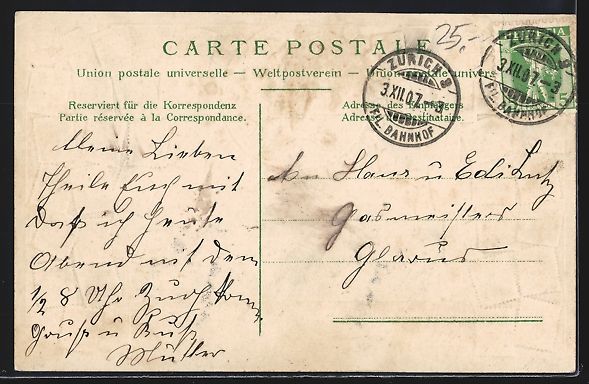 25.-
CARTE POSTALE
Union postale universelle – Weltpostverein – Union postale univers
Reserviert für die Korrespondenz
Partie réservée à la Correspondance.
Adresse des Empfängers
Adresse du Destinataire.
ZÜRICH 8
3.XII.07. – 3
FIL. BAHNHOF
ZÜRICH 8
3.XII.07. – 3
FIL. BAHNHOF
Meine Lieben
Theile Euch mit
daß ich heute
Abend mit dem
1/2 8 Uhr Zug komme
Gruß u Kuß
Mutter
An Hans u Edi Lutz
Gasmeisters
Glarus